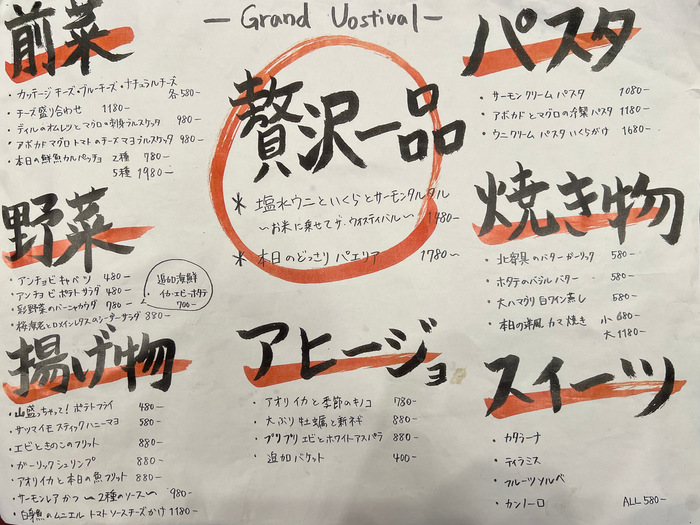 - Grand Vostival -
前菜
・カッテージチーズ・ブルーチーズ・ナチュラルチーズ
各580-
・チーズ盛り合わせ 1180-
・ディルのオムレツとマグロの刺身ブルスケッタ 980-
・アボカドマグロトマトのチーズマヨブルスケッタ 980-
・本日の鮮魚カルパッチョ 2種 780-
5種 1980-
野菜
・アンチョビキャベツ 480-
・アンチョビポテトサラダ 480-
・彩野菜のバーニャカウダ 780-
・桜海老とロメインレタスのシーザーサラダ 880-
追加海鮮
・イカ・エビ・ホタテ
700-
揚げ物
・山盛っちゃって!ポテトフライ 480-
・サツマイモスティックハニーマヨ 580-
・エビときのこのフリット 880-
・ガーリックシュリンプ 880-
・アオリイカと本日の魚フリット 880-
・サーモンレアかつ 〜2種のソース〜 980-
・白身魚のムニエルトマトソースチーズかけ 1180-
贅沢一品
＊塩水ウニといくらとサーモンタルタル
〜お米に乗せてザ・ウォスティバル〜 1480-
＊本日のどっさりパエリア 1780-
アヒージョ
・アオリイカと季節のキノコ 780-
・大ぶり牡蠣と新ネギ 880-
・プリプリエビとホワイトアスパラ 880-
・追加バケット 400-
パスタ
・サーモンクリームパスタ 1080-
・アボカドとマグロの冷製パスタ 1180-
・ウニクリームパスタいくらがけ 1680-
焼き物
・北寄貝のバターガーリック 580-
・ホタテのバジルバター 580-
・大ハマグリ白ワイン蒸し 580-
・本日の洋風カマ焼き 小 680-
大 1180-
スイーツ
・カタラーナ
・ティラミス
・フルーツソルベ
・カンノーロ ALL 580-